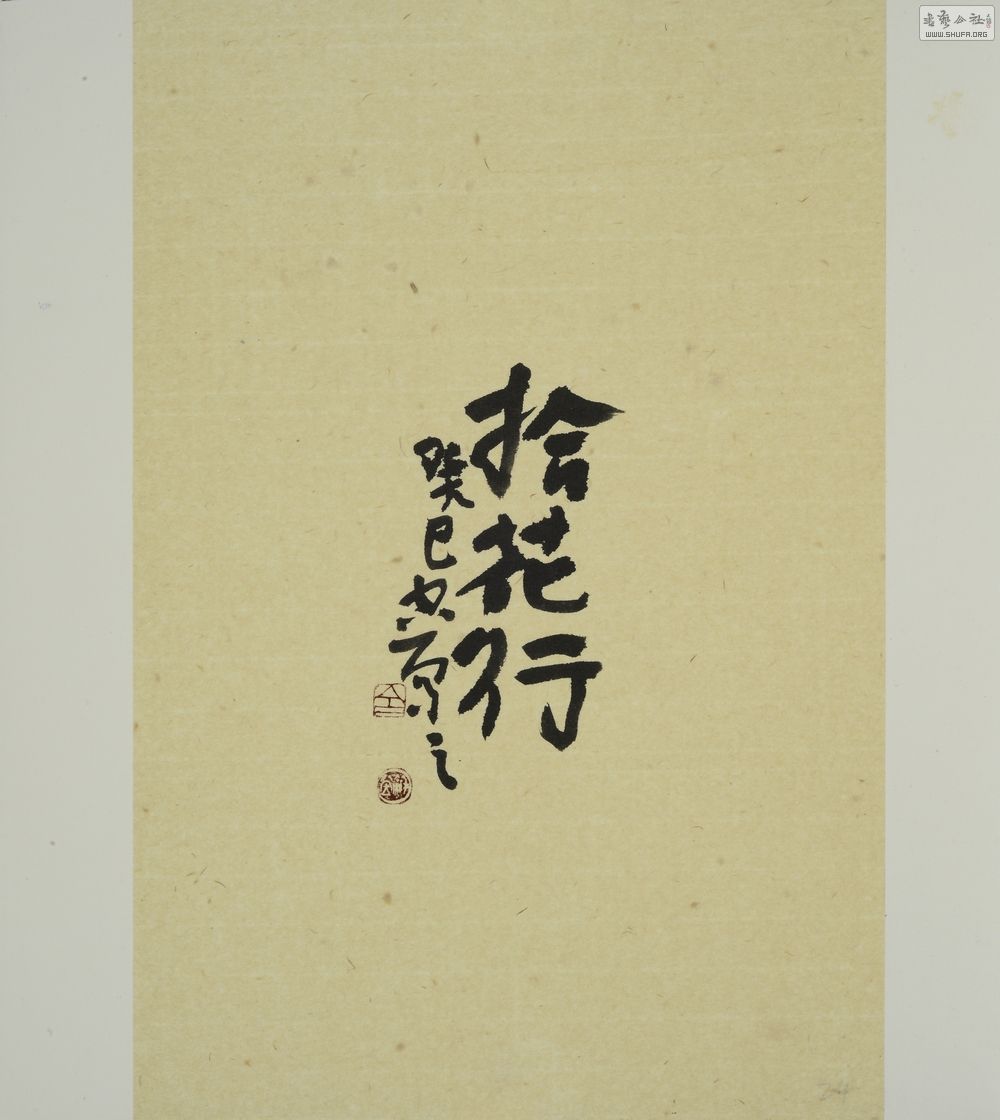 拾花行
癸巳
之
书艺公社
WWW.SHUFA.ORG